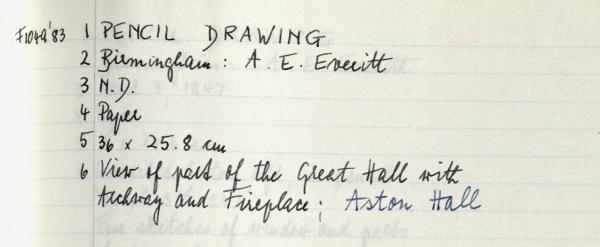 F1049'83 1 PENCIL DRAWING
2 Birmingham: A. E. Everitt
3 N.D.
4 Paper
5 36 x 25.8 cm
6 View of part of the Great Hall with
Archway and Fireplace; Aston Hall